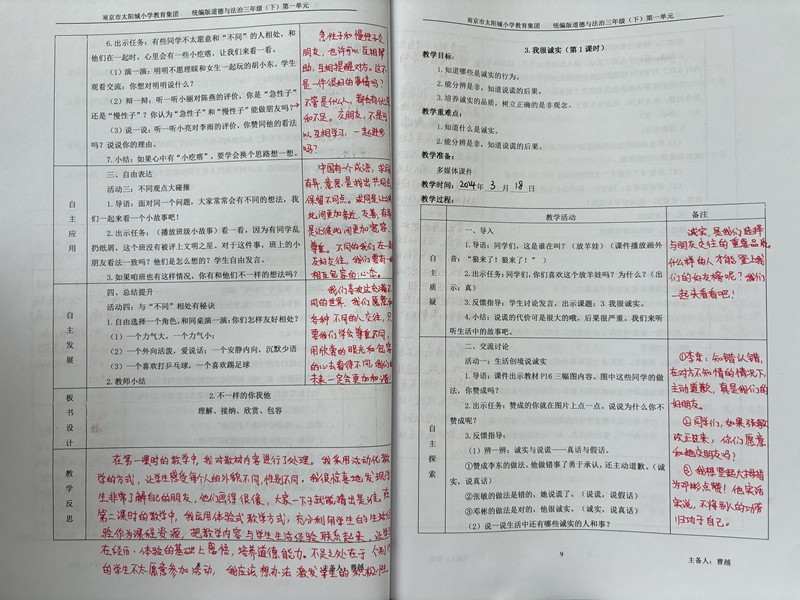 南京市太阳城小学教育集团 统编版道德与法治三年级（下）第一单元
6.出示任务：有些同学不太愿意和“不同”的人相处，和
他们在一起时，心里会有一些小疙瘩，让我们来看一看。
（1）演一演：明明不愿理睬和女生一起玩的胡小东。学生
观看交流：你想对明明说什么？
（2）辩一辩：听一听小丽对陈燕的评价，你是“急性子”
还是“慢性子”？你认为“急性子”和“慢性子”能做朋友吗？
（3）说一说：听一听小亮对李雨的评价，你赞同他的看法
吗？说说你的理由。
7.小结：如果心中有“小疙瘩”，要学会换个思路想一想。
急性子和慢性子交
朋友，也许可以互相帮
助，互相提醒对方。这不
是一件很好的事情吗？
不管是什么人，都有
和不足。交朋友，不是可
以互相学习，一起进步
吗？
自主应用
三、自由表达
活动三：不同观点大碰撞
1.导语：面对同一个问题，大家常常会有不同的想法，我
们一起来看一个小故事吧！
2.出示任务：（播放班级小故事）看一看，因为有同学乱
扔纸屑，这个班没有被评上文明之星。对于这件事，班上的小
朋友看法一致吗？他们是怎么想的？学生自由发言。
3.如果咱班也有这样情况，你有和他们不一样的想法吗？
中国有一个成语，求同
存异，意思是找出共同点
保留不同点。求同是让彼
此间更加亲近、友善，存异
是让彼此间更加宽容、
尊重。不同的我们在一起
友好交往，我们要有
相互包容的心态。
自主发展
四、总结提升
活动四：与“不同”相处有秘诀
1.自由选择一个角色，和同桌演一演：你们怎样友好相处？
（1）一个力气大，一个力气小；
（2）一个外向活泼，爱说话；一个安静内向，沉默少语
（3）一个喜欢打乒乓球，一个喜欢踢足球
2.教师小结
我们喜欢这充满不
同的世界，我们愿意和
各种不同的人交往，只
要我们学会尊重不同，
用欣赏的眼光和包容
的心去看待不同，我们的
未来一定会更加和谐！
板书设计
2.不一样的你我他
理解、接纳、欣赏、包容
教学反思
在第一课时的教学中，我对教材内容进行了处理。我采用活动化教
学的方式，让学生感受每个人的外貌不同，性别不同。我很惊喜地发现学
生非常了解自己的朋友，他们画得很像，大家一下子就能猜出是谁。在
第二课时的教学中，我运用体验式教学方式，充分利用学生的生活经
验作为课程资源，把教学内容与学生生活经验联系起来，让学生
在经历、体验的基础上感悟，培养道德能力。不足之处在于个别
的学生不太愿意参加活动，我应该想办法激发学生的积极性
主备人：曹越
南京市太阳城小学教育集团 统编版道德与法治三年级（下）第一单元
3.我很诚实（第1课时）
教学目标：
1.知道哪些是诚实的行为。
2.能分辨是非，知道说谎的后果。
3.培养诚实的品质，树立正确的是非观念。
教学重难点：
1.知道什么是诚实。
2.能分辨是非，知道说谎的后果。
教学准备：
多媒体课件
教学时间：2024年 3 月 18 日
教学过程：
教学活动
备注
自主质疑
一、导入
1.导语：同学们，这是谁在叫？（放羊娃）（课件播放画外
音：“狼来了！狼来了！”）
2.出示任务：同学们，你们喜欢这个放羊娃吗？为什么？（出
示：真）
3.反馈指导：学生讨论发言，出示课题：3 我很诚实。
4.小结：说谎的代价可是很大的哦，后果很严重。我们来听
听生活中的故事吧。
诚实，是我们选择
与朋友交往的重要品质。
什么样的人才能登上我
们的好友榜呢？我们
一起来看看吧！
自主探索
二、交流讨论
活动一：生活创境说诚实
1.导语：课件出示教材P16三幅图内容。图中这些同学的做
法，你赞成吗？
2.出示任务：赞成的你就在图片上点一点。说说为什么你不
赞成呢？
3.反馈指导：
（1）辨一辨：诚实与说谎——真话与假话。
①赞成李东的做法。他做错事了勇于承认，还主动道歉。（诚
实，说真话）
②张敏的做法是错的，她说谎了。（说谎，说假话）
③邓彬的做法是对的，他很诚实。（诚实，说真话）
（2）说一说生活中还有哪些诚实的人和事？
①李东：知错认错，
在对方不知情的情况下，
主动道歉，真是我们的
好朋友。
②同学们，如果张敏
改正过来，你们愿意
和她交朋友吗？
③我想竖起大拇指
为邓彬点赞！他实话
实说，不将别人的功劳
归功于自己。
9
主备人：曹越